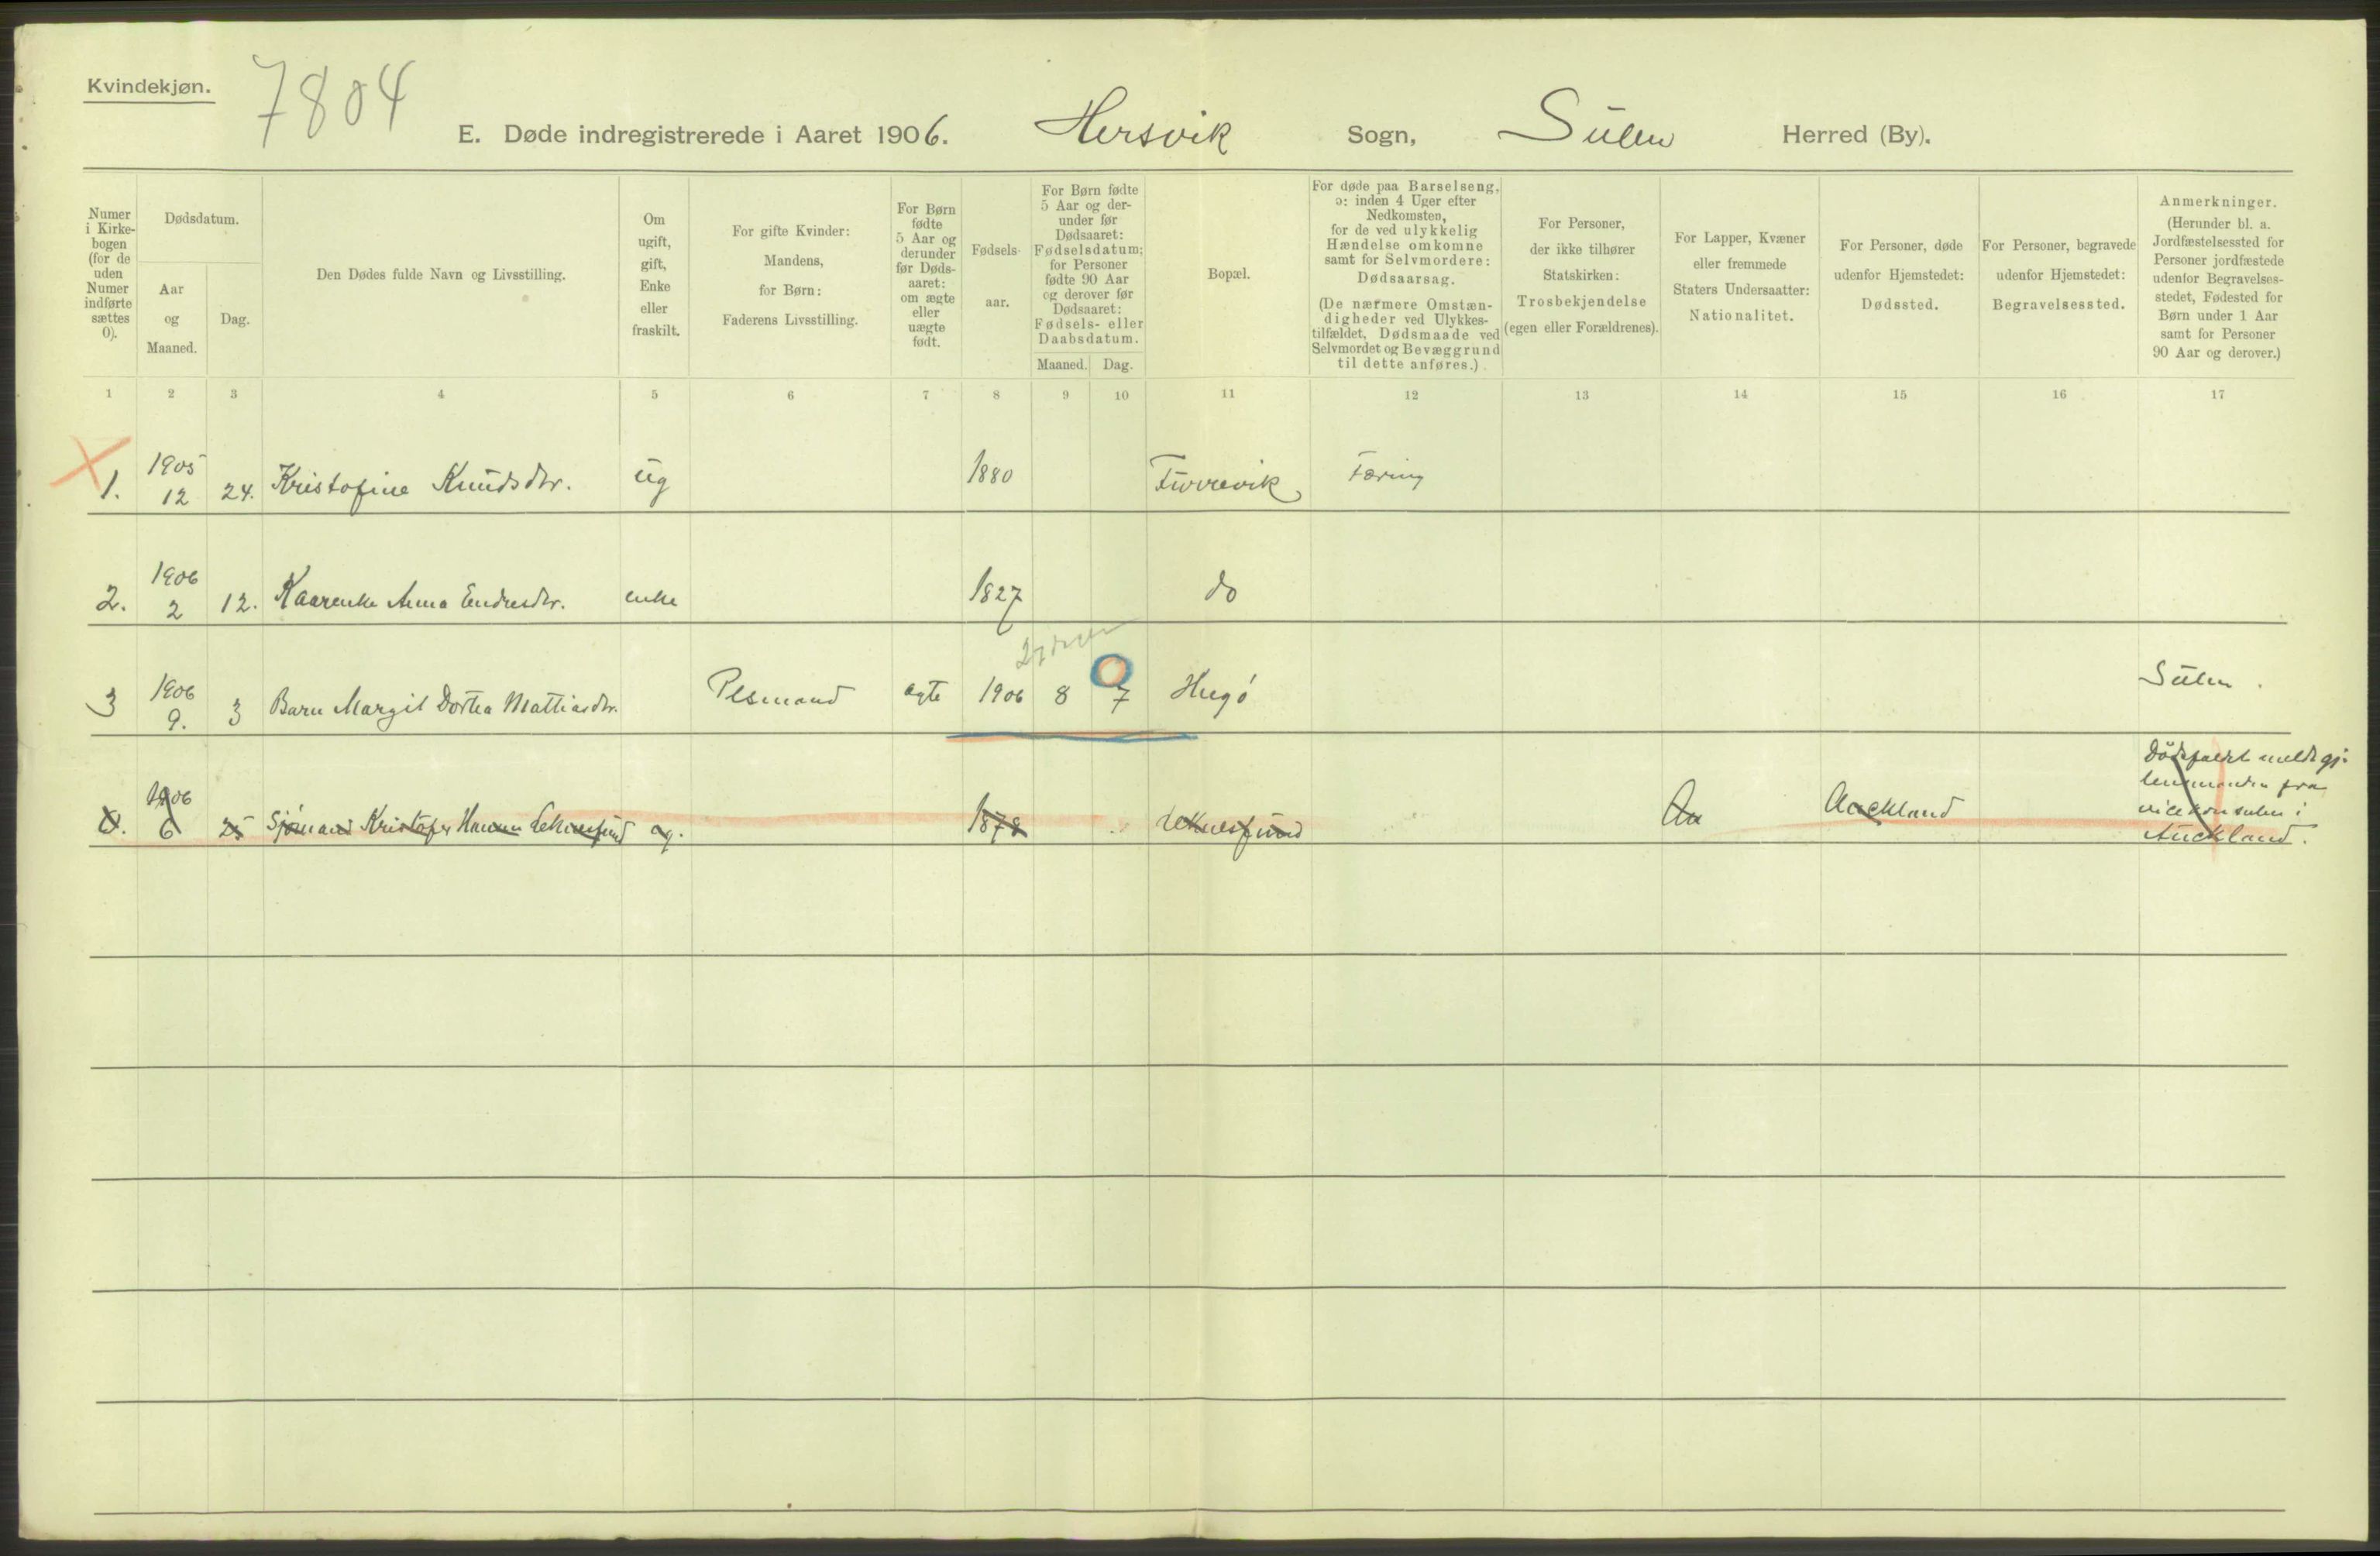 Kvindekjøn.
7804
E. Døde indregistrerede i Aaret 1906. Hersvik Sogn, Sulen Herred (By).
Numer
i Kirke-
bogen
(for de
uden
Numer
indførte
sættes
0).
Dødsdatum.
Aar
og
Maaned.
Dag.
Den Dødes fulde Navn og Livsstilling.
Om
ugift,
gift,
Enke
eller
fraskilt.
For gifte Kvinder:
Mandens,
for Børn:
Faderens Livsstilling.
For Børn
fødte
5 Aar og
derunder
før Døds-
aaret:
om ægte
eller
uægte
født.
Fødsels-
aar.
For Børn fødte
5 Aar og der-
under før
Dødsaaret:
Fødselsdatum;
for Personer
fødte 90 Aar
og derover før
Dødsaaret:
Fødsels- eller
Daabsdatum.
Maaned. Dag.
Bopæl.
For døde paa Barselseng,
ɔ: inden 4 Uger efter
Nedkomsten,
for de ved ulykkelig
Hændelse omkomne
samt for Selvmordere:
Dødsaarsag.
(De nærmere Omstæn-
digheder ved Ulykkes-
tilfældet, Dødsmaade ved
Selvmordet og Bevæggrund
til dette anføres.)
For Personer,
der ikke tilhører
Statskirken:
Trosbekjendelse
(egen eller Forældrenes).
For Lapper, Kvæner
eller fremmede
Staters Undersaatter:
Nationalitet.
For Personer, døde
udenfor Hjemstedet:
Dødssted.
For Personer, begravede
udenfor Hjemstedet:
Begravelsessted.
Anmerkninger.
(Herunder bl. a.
Jordfæstelsessted for
Personer jordfæstede
udenfor Begravelses-
stedet, Fødested for
Børn under 1 Aar
samt for Personer
90 Aar og derover.)
1 2 3 4 5 6 7 8 9 10 11 12 13 14 15 16 17
1. 1905 12 24. Kristofine Knudsdtr. ug 1880 Færing
2. 1906 2 12. Kaarenke Anna Endresdtr. enke 1827 do
3 1906 9. 3 Barn Margit Dortea Mattiasdtr. Plsmand ægte 1906 8 7 Hugø Sulen.
1906 6 25 Sjømand Kristofer ug. 1878 Auckland
Dødsfaldet meldt gj.
lensmanden fra
vicekonsulen i
Auckland.